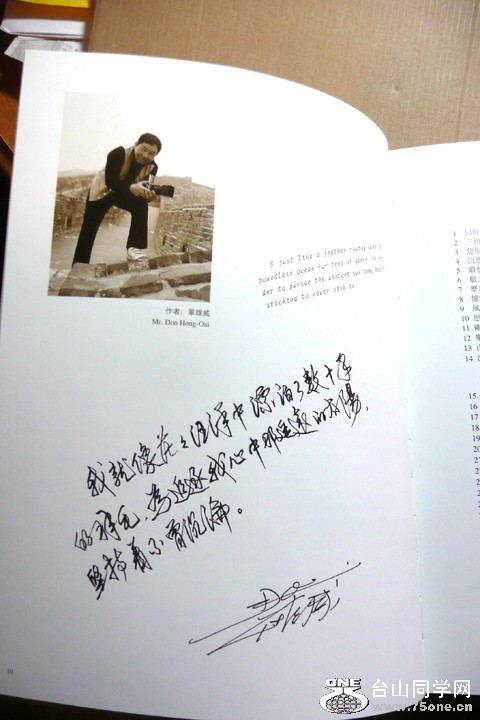 作者: 單雄威
Mr. Don Hong-Oai
I just like a feather routes over a
boundless ocean for tens of years. In or-
der to pursue the distant sun
sticking to never sink to.
我就像茫々汪洋中漂泊了数十年
的羽毛,為追逐我心中那遥遠的太陽,
堅持着不曾沉淪。
1
2
3
4
5
6
7
8
9
10
11
12
13
14
15
16
17
18
19
20
21
22
23
ONE
台山同学网
www.75one.cn